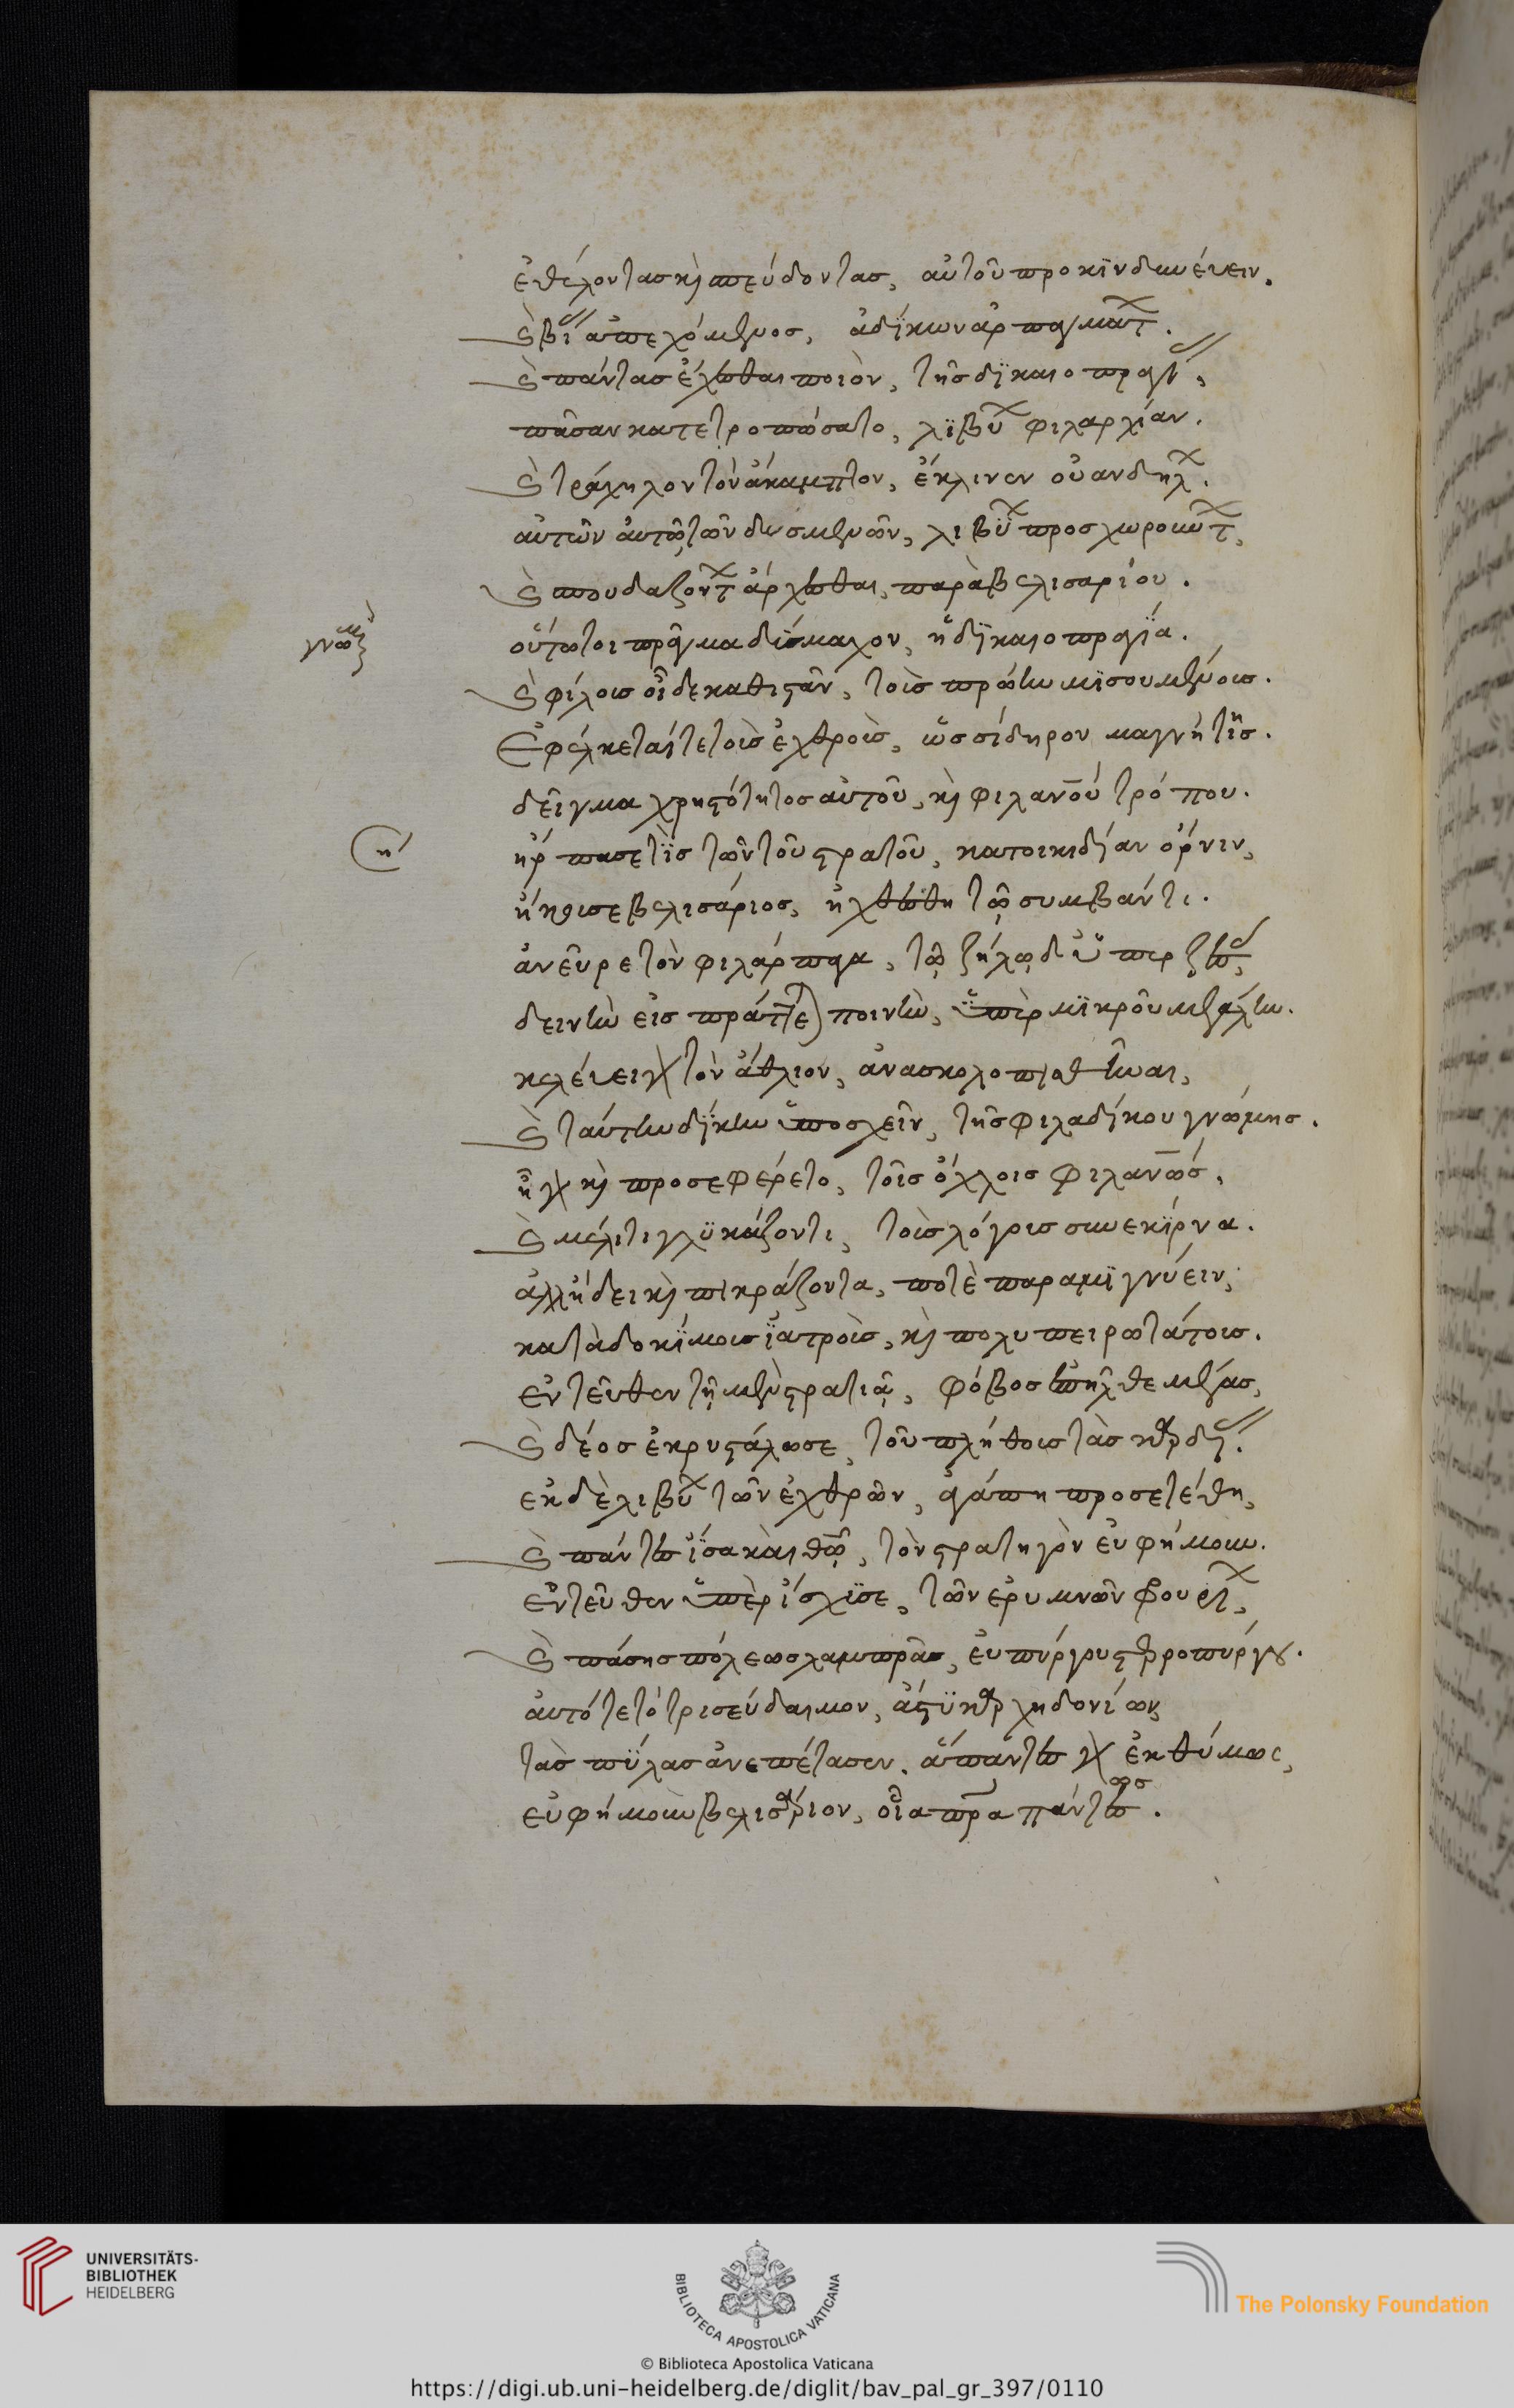 ἐθέλοντας κὶ σπεύδοντας, αὐτοῦ προκινδυνεύειν.
καὶ βίας ἀπεχόμενος, ἀδίκων ἁρπαγμάτων.
καὶ πάντας ἔχεσθαι ποιῶν, τῆς δικαιοπραγίας,
πᾶσαν κατετροπώσατο, λιβύων φιλαρχίαν.
καὶ τράχηλον τὸν ἄκαμπτον, ἔκλινεν οὐανδήλων.
αὐτῶν αὐτῷ τῶν δυσμενῶν, λιβύων προσχωρούντων,
καὶ σπουδαζόντων ἄρχεσθαι, παρὰ βελισαρίου.
οὕτω τοι πρᾶγμα δύσμαχον, ἡ δικαιοπραγία.
καὶ φίλους οἶδε καθιστᾶν, τοὺς πρώην μισουμένους.
Ἐφέλκεταί τε τοὺς ἐχθροὺς, ὡς σίδηρον μαγνῆτις.
δεῖγμα χρηστότητος αὐτοῦ, κὶ φιλανοῦ τρόπου.
ἥρπασέ τις τῶν τοῦ στρατοῦ, κατοικιδίαν ὄρνιν,
ἤκουσε βελισάριος, ἠχθέσθη τῷ συμβάντι.
ἀνεῦρε τὸν φιλάρπαγα, τῷ ζήλῳ δ' ὑπερζέσας,
δεινὴν εἰσπράττεται ποινὴν, ὑπὲρ μικροῦ μεγάλην.
κελεύει γὰρ τὸν ἄθλιον, ἀνασκολοπισθῆναι,
καὶ ταύτην δίκην ὑποσχεῖν, τῆς φιλαδίκου γνώμης.
εἰ γὰρ κὶ προσεφέρετο, τοῖς ὄχλοις φιλανως,
καὶ μέλιτι γλυκάζοντι, τοὺς λόγους συνεκίρνα.
ἀλλ' ᾔδει κὶ πικράζοντα, ποτὲ παραμιγνύειν,
κατὰ δοκίμους ἰατροὺς, κὶ πολυπειροτάτους.
ἐντεῦθεν τῇ μὲν στρατιᾷ, φόβος ἐπῆλθε μέγας,
καὶ δέος ἐκρυστάλωσε, τοῦ πλήθους τὰς καρδίας.
ἐκ δὲ λιβύων τῶν ἐχθρῶν, ἀγάπη προσετέθη,
καὶ πάντες ἴσα καὶ θῶ, τὸν στρατηγὸν εὐφήμουν.
ἐντεῦθεν ὑπερίσχυσε, τῶν ἐρυμνῶν φουρίων,
καὶ πάσης πόλεως λαμπρᾶς, εὐπύργου στερροπύργου.
αὐτό τε τὸ τρισεύδαιμον, ἄστυ καρχηδονίων
τὰς πύλας ἀνεπέτασεν. ἅπαντες γὰρ ἐκθύμως,
εὐφήμουν βελισάριον, οἷα πρα πάντες.
γνώμη
η
UNIVERSITÄTS-
BIBLIOTHEK
HEIDELBERG
BIBLIOTECA APOSTOLICA VATICANA
The Polonsky Foundation
© Biblioteca Apostolica Vaticana
https://digi.ub.uni-heidelberg.de/diglit/bav_pal_gr_397/0110